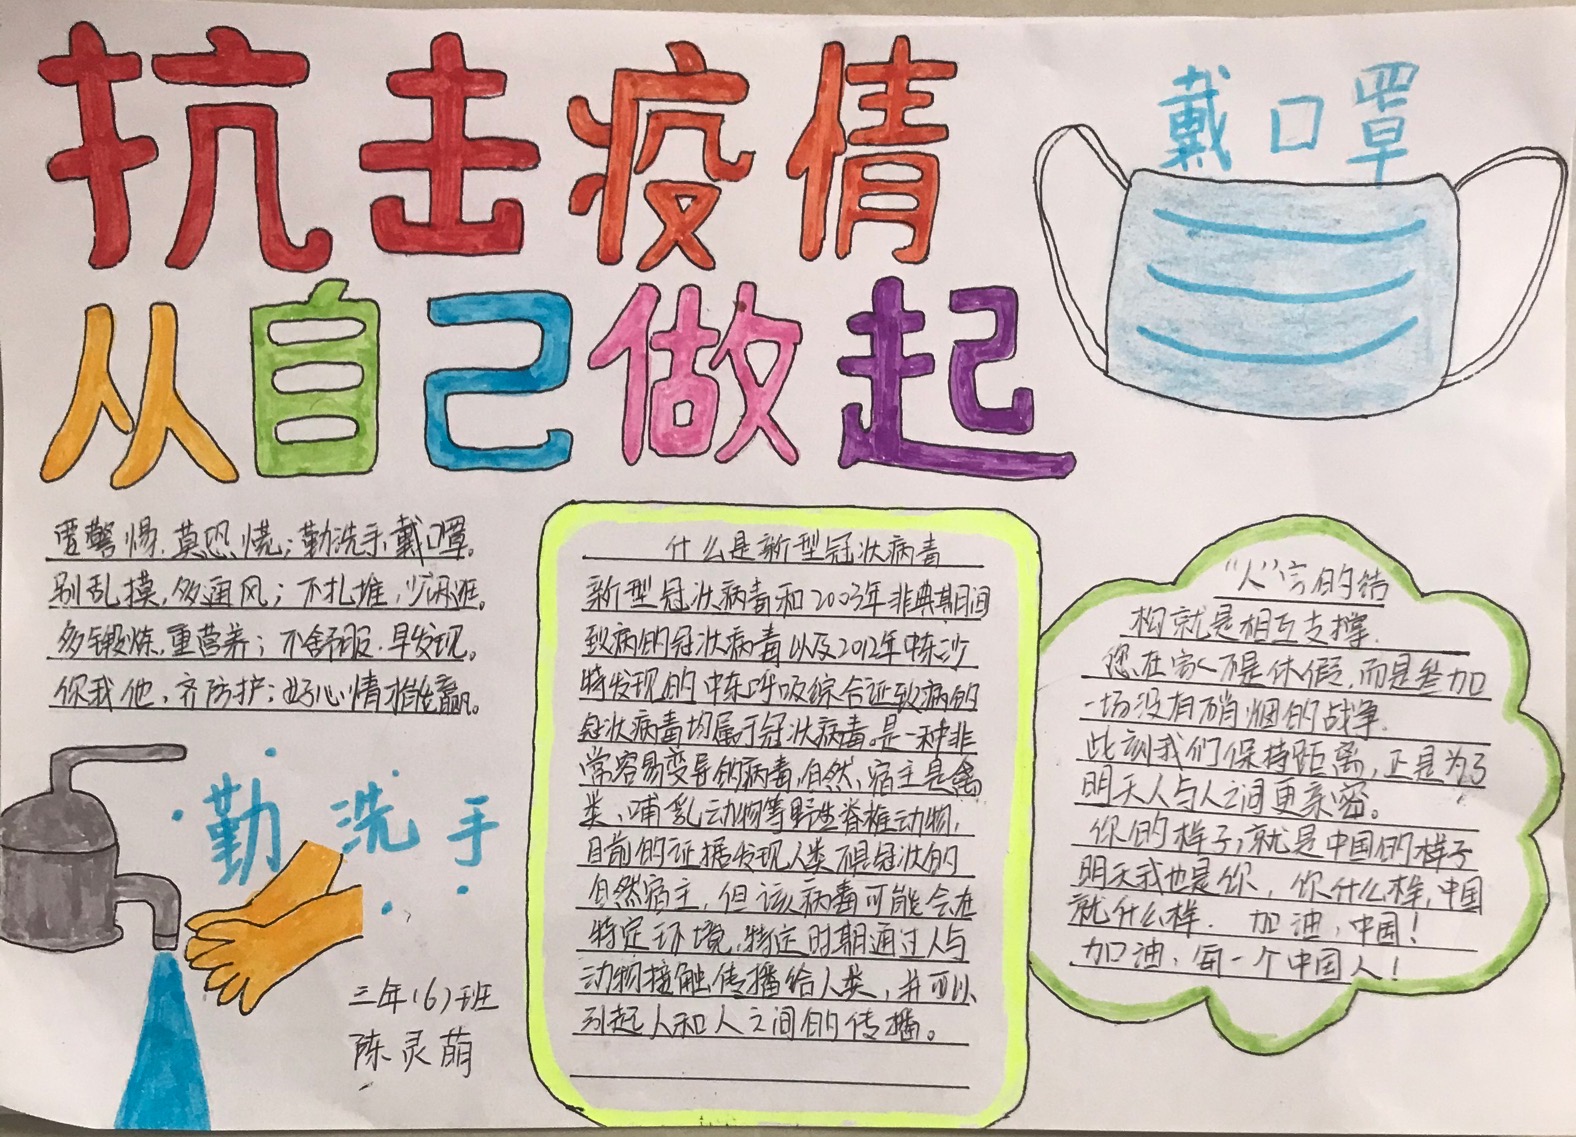 抗击疫情
从自己做起
戴口罩
要警惕,莫恐慌;勤洗手,戴口罩。
别乱摸,多通风;不扎堆,少闲逛。
多锻炼,重营养;不舒服,早发现。
你我他,齐防护;好心情才能赢。
勤洗手
三年(6)班
陈灵萌
什么是新型冠状病毒
新型冠状病毒和2003年非典期间
致病的冠状病毒以及2012年中东沙
特发现的中东呼吸综合征致病的
冠状病毒均属于冠状病毒。是一种非
常容易变异的病毒,自然宿主是禽
类、哺乳动物等野生脊椎动物,
目前的证据发现人类不是冠状的
自然宿主,但该病毒可能会在
特定环境,特定时期通过人与
动物接触传播给人类,并可以
引起人和人之间的传播。
“人”字的结
构就是相互支撑.
您在家不是休假,而是参加
一场没有硝烟的战争.
此刻我们保持距离,正是为了
明天人与人之间更亲密。
你的样子,就是中国的样子
明天我也是你,你什么样,中国
就什么样. 加油,中国!
加油,每一个中国人!